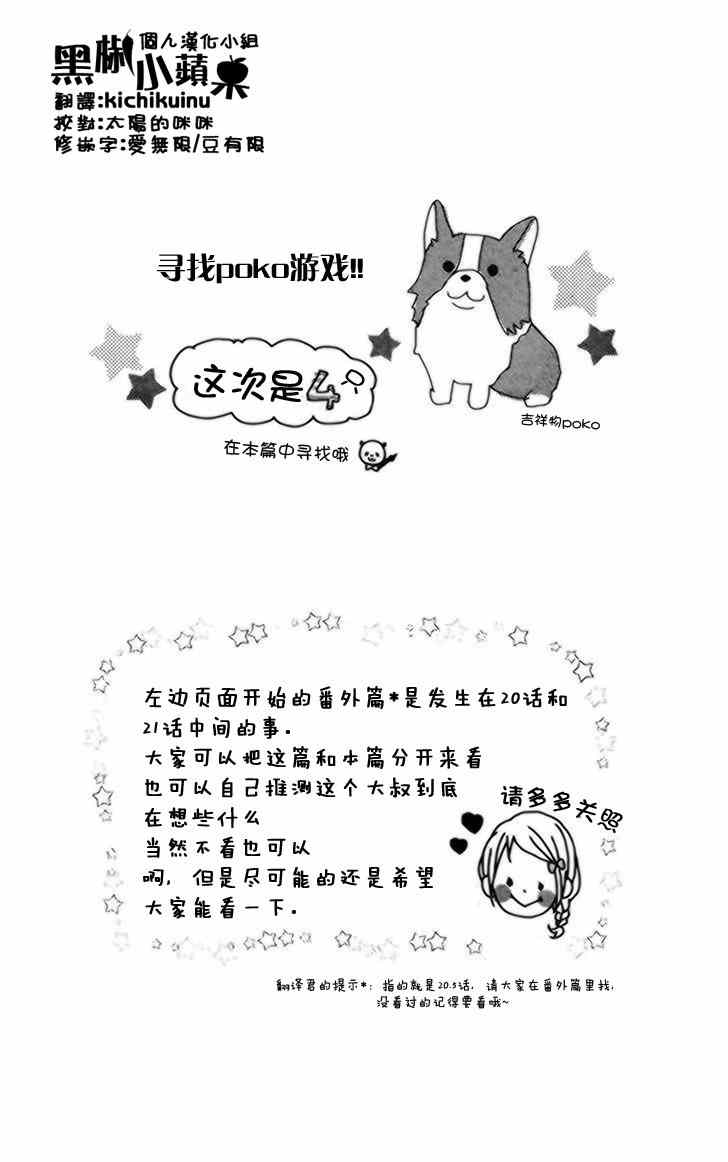 個人漢化小組
黑椒小蘋果
翻譯:kichikuinu
校對:太陽的咪咪
修嵌字:愛無限/豆有限
寻找poko游戏!!
这次是4只
吉祥物poko
在本篇中寻找哦
左边页面开始的番外篇*是发生在20话和
21话中间的事。
大家可以把这篇和本篇分开来看
也可以自己推测这个大叔到底
在想些什么
请多多关照
当然不看也可以
啊，但是尽可能的还是希望
大家能看一下。
翻译君的提示*：指的就是20.5话，请大家在番外篇里找，
没看过的记得要看哦~